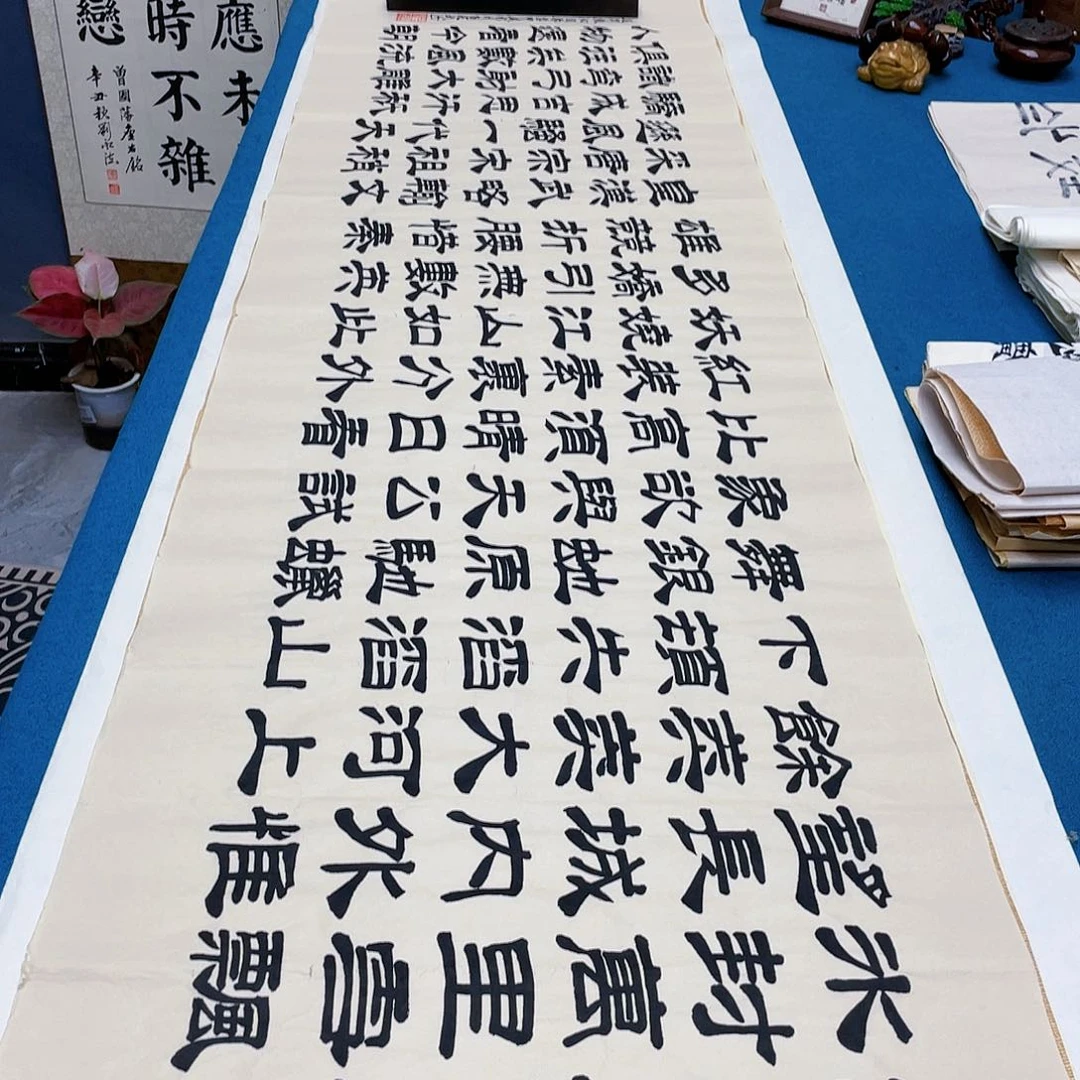 冰封萬里雪飄
望長城內外惟
餘莽莽大河上
下頓失滔滔山
舞銀蛇原馳蠟
象欲與天公試
比高須晴日看
紅裝素裹分外
妖嬈江山如此
多嬌引無數英
雄競折腰惜秦
皇漢武略輸文
采唐宗宋祖稍
遜風騷一代天
驕成吉思汗祇
識彎弓射大雕
俱往矣數風流
人物還看今朝
應未
時不雜
戀
曾國藩座右銘
辛丑秋劉